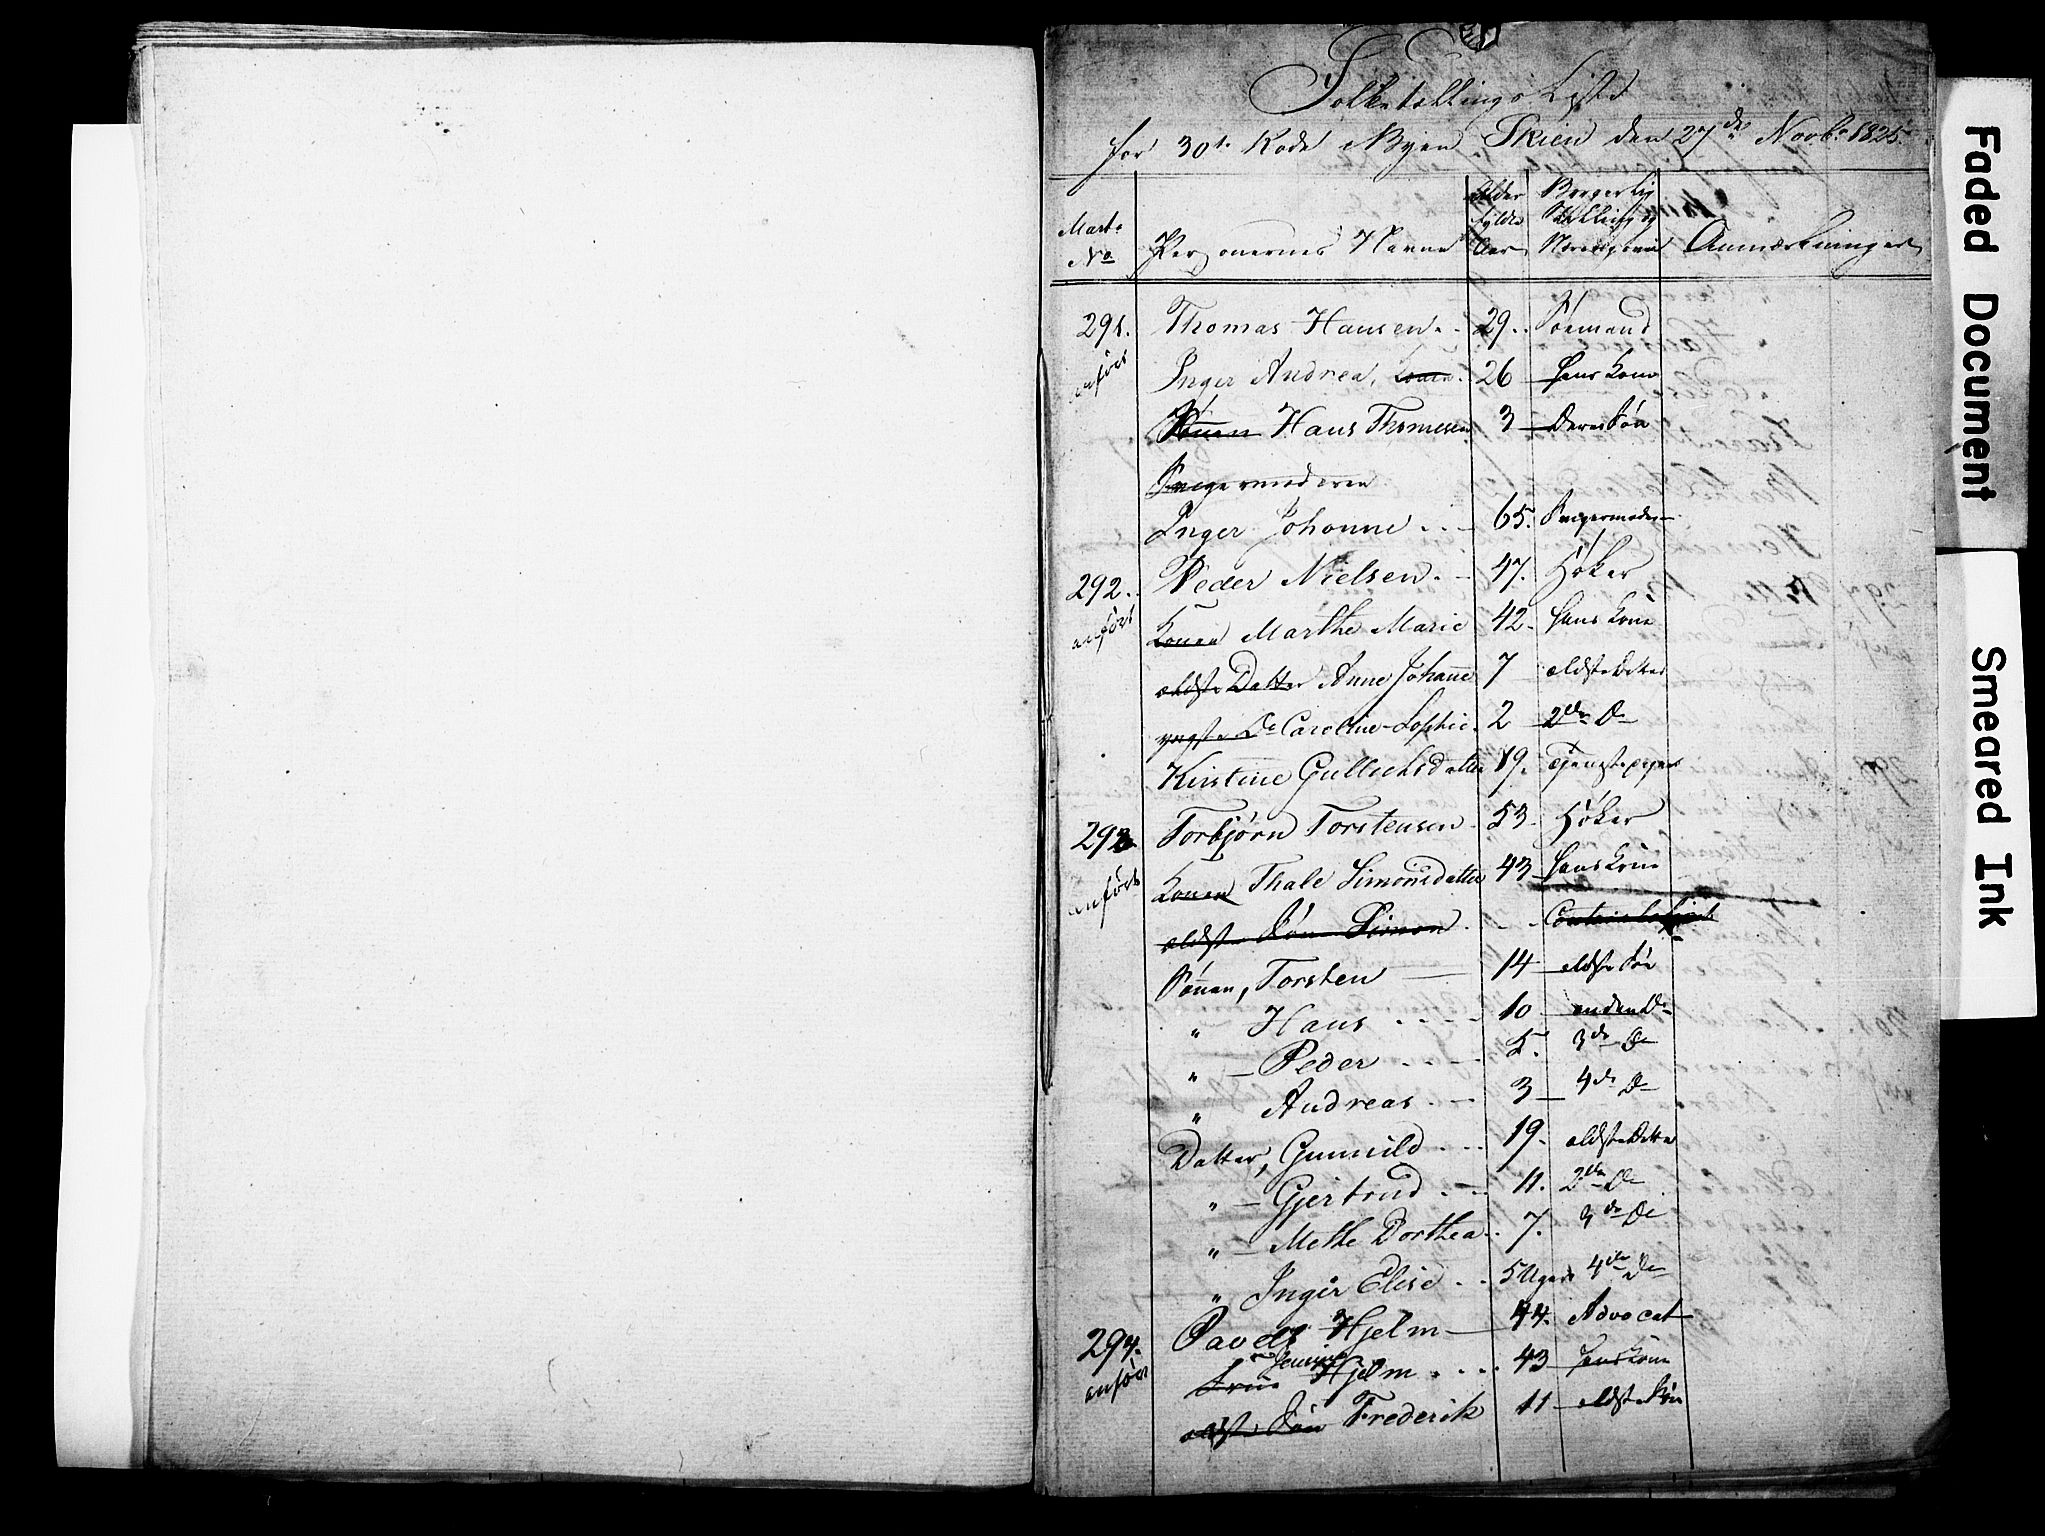 Folketellings Liste
for 30te Rode i Byen Skien den 27de Novbr 1825.
Mart. No
Personernes Navne
Alder fyldte Aar
Borgerlig Stilling og Næringsvei
Anmærkninger
291. Thomas Hansen. 29. Sömand
anført Inger Andrea, Konen. 26 Hans Kone
Sönen Hans Thomesen 3 Deres Sön
Svigermoderen
Inger Johanne 65. Svigermoder
292. Peder Nielsen. 47. Høker
anført Konen Marthe Marie 42. Hans Kone
ældste Datter Anne Johanne 7 ældste Datter
yngste Do Caroline Sophie. 2 2den Do
Kirstine Gullichsdatter 19. Tjenestepige
293 Torbjørn Torstensen. 53. Høker
anført Konen Thale Simonsdatter 43 Hans Kone
ældste Sön Simon
Sönen, Torsten 14 ældste Sön
" Hans 10 anden Do
" Peder 5. 3de Do
" Andreas 3 4de Do
Datter, Gunnild 19. ældste Datter
" Gjertrud 11. 2den Do
" Methe Dorthea. 7. 3de Do
" Inger Elise 5 Uger 4de Do
294. Pavels Hjelm 44. Advocat
anført Frue Hjelm 43 Hans Kone
ældste Sön Frederik 11 ældste Sön
Faded Document
Smeared Ink